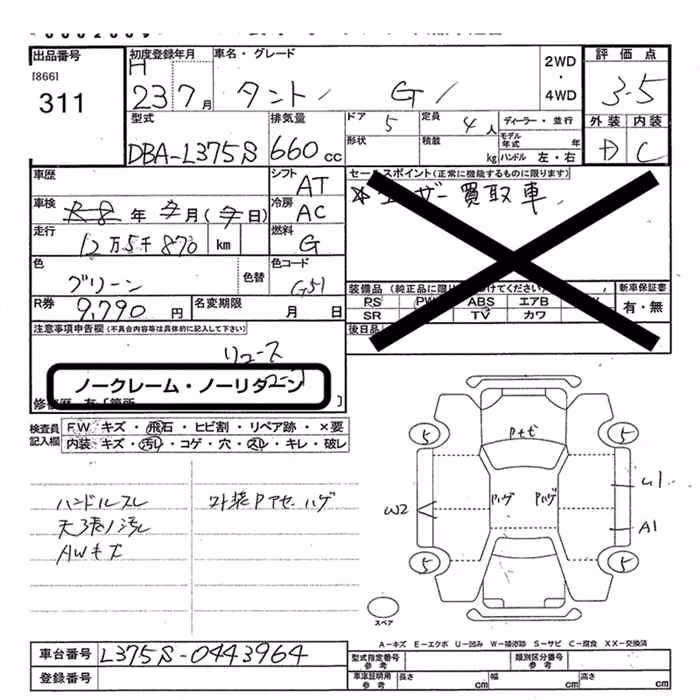 出品番号
[866]
311
初度登録年月
H
23 7月
車名・グレード
タント / G /
2WD
・
4WD
評価点
3.5
外装 内装
D C
型式
DBA-L375S
排気量
660 cc
ドア 5
定員 4 人
ディーラー・並行
形状
積載 kg
モデル年式 年
ハンドル 左・右
車歴
シフト AT
セールスポイント(正常に機能するものに限ります)
ユーザー買取車
車検
R8 年 7月(7日)
冷房 AC
走行
12万5千870 km
燃料 G
色
グリーン
色替
色コード
G51
装備品
新車保証書
PS ABS エアB
SR TV カワ
有・無
R券
9,790 円
名変期限
月 日
後日品
注意事項申告欄(不具合内容等は具体的に記入して下さい)
リユース
ノークレーム・ノーリターン
検査員
記入欄
FW キズ・飛石・ヒビ割・リペア跡・×要
内装 キズ・汚れ・コゲ・穴・スレ・キレ・破レ
ハンドルスレ
天張り汚れ
AWキズ
外装Pアセ・ハゲ
5 Pナビ 5
Pハゲ Pハゲ
W2
U1
A1
5 5
スペア
A-キズ E-エクボ U-凹み W-補修跡 S-サビ C-腐食 XX-交換済
車台番号
L375S-0443964
登録番号
型式指定番号
参考
類別区分番号
参考
車庫証明用
参考
長さ cm
幅 cm
高さ cm